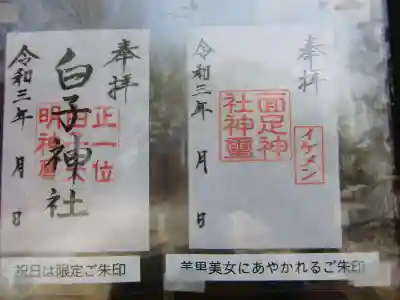 奉拝
白子神社
正一位
令和三年 月 日
祝日は限定ご朱印
奉拝
イケメン
面足神
社神璽
令和三年 月 日
美男美女にあやかれるご朱印